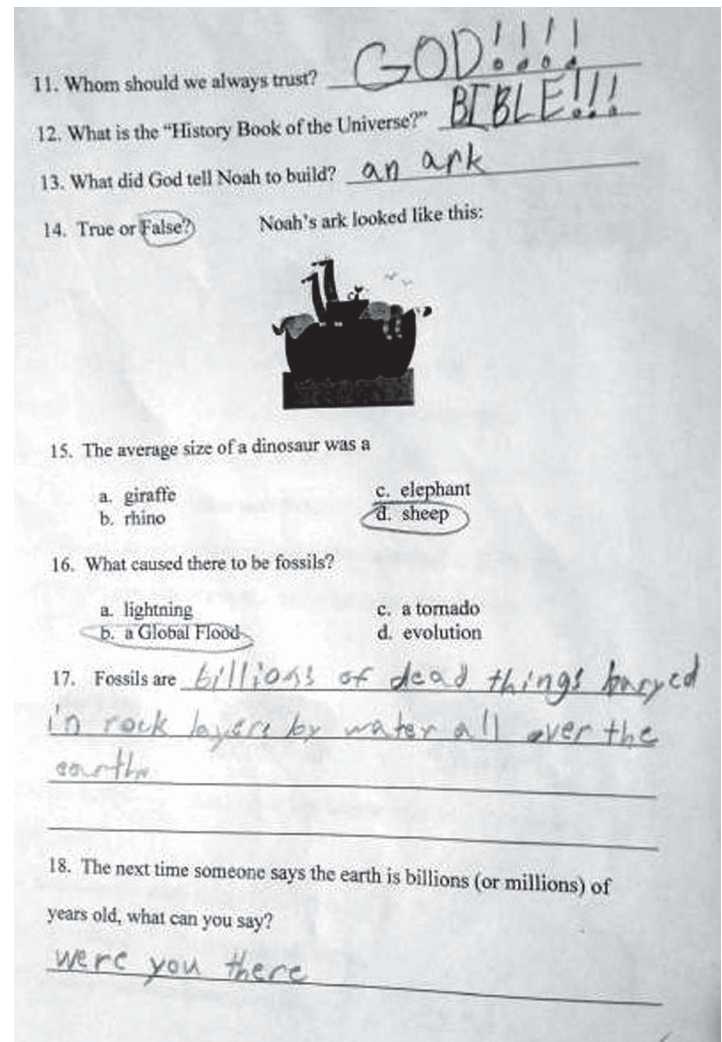 11. Whom should we always trust? GOD!!!!
12. What is the “History Book of the Universe?” BIBLE!!!
13. What did God tell Noah to build? an ark
14. True or False? Noah’s ark looked like this:
15. The average size of a dinosaur was a
a. giraffe c. elephant
b. rhino d. sheep
16. What caused there to be fossils?
a. lightning c. a tornado
b. a Global Flood d. evolution
17. Fossils are billions of dead things buryed
in rock layers by water all over the
earth
18. The next time someone says the earth is billions (or millions) of
years old, what can you say?
were you there